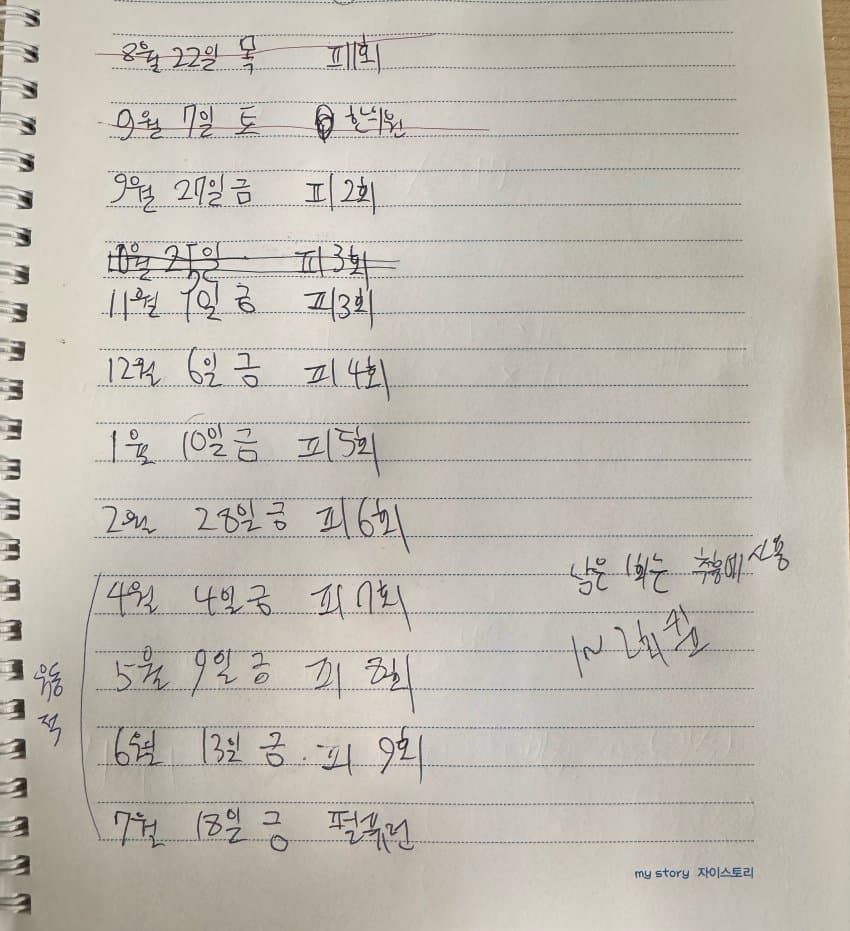 8월 22일 목 피 1회
9월 7일 토 한의원
9월 27일 금 피 2회
10월 25일 피 3회
11월 1일 금 피 3회
12월 6일 금 피 4회
1월 10일 금 피 5회
2월 28일 금 피 6회
남은 1회는 추후에 사용
4월 4일 금 피 7회
1~2회
5월 9일 금 피 8회
유동적
6월 13일 금. 피 9회
7월 18일 금
my story 자이스토리